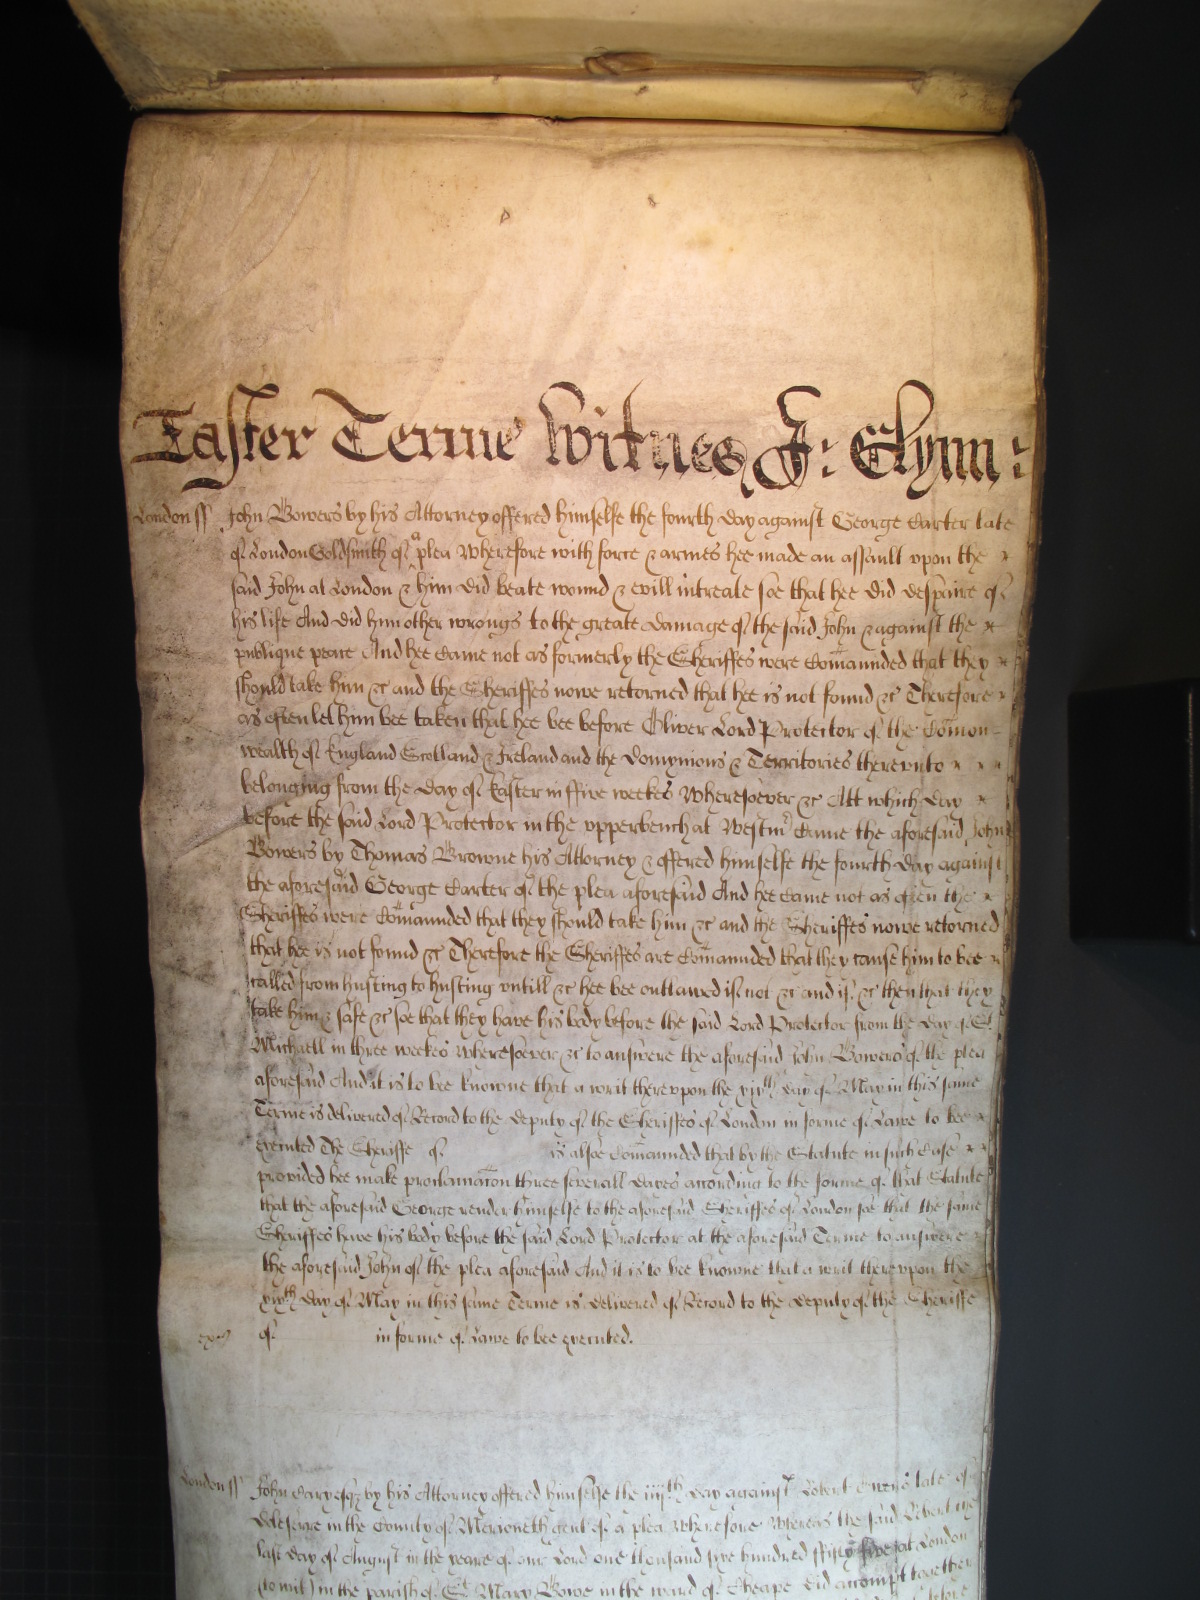 Easter Terme Witnes J: Glynn:
London ss John Bowers by his Attorney offered himselfe the fourth day against George Carter late
of London Goldsmith of a plea Wherefore with force & armes hee made an assault vpon the
said John at London & him did beate wound & evill intreate soe that hee did despaire of
his life And did him other wrongs to the great damage of the said John & against the
publique peace And hee came not as formerly the Sheriffes were Comaunded that they
should take him &c and the Sheriffes nowe retorned that hee is not found &c Therefore
as often let him bee taken that hee bee before Oliver Lord Protector of the Comon-
wealth of England Scotland & Ireland and the Domynions & Territories therevnto
belonging from the day of Easter in ffive weekes Wheresoever &c Att which day
before the said Lord Protector in the vpperbench at Westmr Came the aforesaid John
Bowers by Thomas Browne his Attorney & offered himselfe the fourth day against
the aforesaid George Carter of the plea aforesaid And hee came not as often the
Sheriffes were Comaunded that they should take him &c and the Sheriffes nowe retorned
that hee is not found &c Therefore the Sheriffes are Comaunded that they cause him to bee
called from husting to husting vntill &c hee bee outlawed if not &c and if &c then that they
take him & safe &c soe that they have his body before the said Lord Protector from the day of St
Michaell in three weekes wheresoever &c to answere the aforesaid John Bowers of the plea
aforesaid And it is to bee knowne that a writ therevpon the xixth day of May in this same
Terme is delivered of Record to the deputy of the Sheriffes of London in forme of Lawe to bee
executed The Sheriffe of is alsoe Comaunded that by the Statute in such Case
provided hee make proclamacon three severall dayes according to the forme of that Statute
that the aforesaid George render himselfe to the aforesaid Sheriffes of London soe that the same
Sheriffes have his body before the said Lord Protector at the aforesaid Terme to answere
the aforesaid John of the plea aforesaid And it is to bee knowne that a writ therevpon the
xixth day of May in this same Terme is delivered of Record to the deputy of the Sheriffe
of in forme of Lawe to bee executed.
London ss John Cary esqr by his Attorney offered himselfe the iiijth day against Robert Owens late of
in the County of Merioneth gent of a plea Wherefore Whereas the said Robert the
last day of August in the yeare of our Lord one thousand sixe hundred ffifty five at London
(to wit) in the parish of St Mary Bowe in the ward of Cheape did accompt together